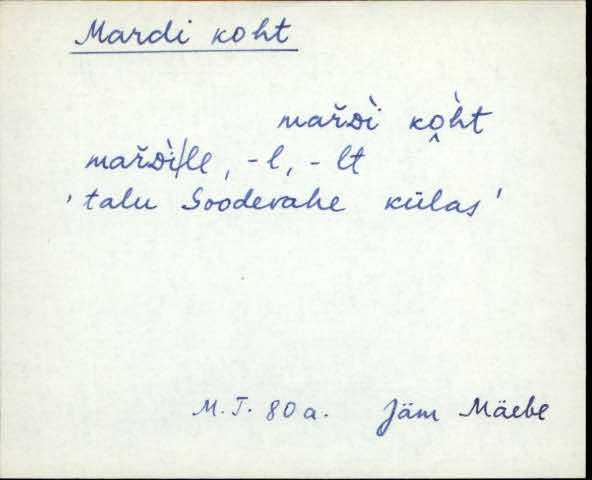 Mardi koht
mařᴅì kò̭ht
mařᴅì/le, -l, -lt
'talu Soodevahe külas'
M.T. 80 a. Jäm Mäebe